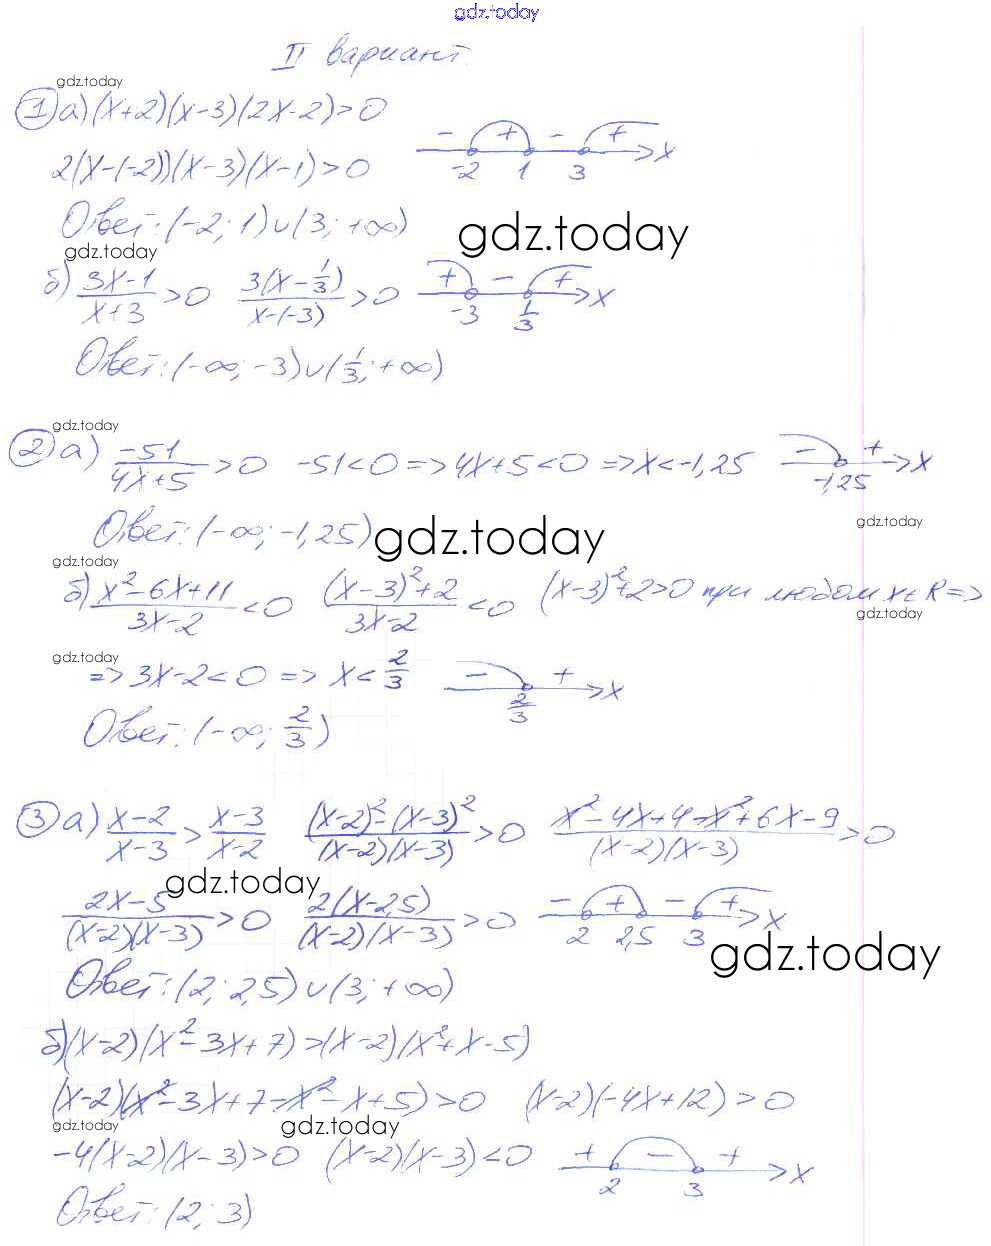 gdz.today
II вариант.
gdz.today
1 а) (x+2)(x-3)(2x-2)>0
- + - +
-2 1 3 x
2(x-(-2))(x-3)(x-1)>0
Ответ: (-2; 1)∪(3; +∞)
gdz.today
gdz.today
б) (3x-1)/(x+3)>0 3(x-1/3)/(x-(-3))>0
+ - +
-3 1/3 x
Ответ: (-∞; -3)∪(1/3; +∞)
gdz.today
2 а) -51/(4x+5)>0 -51<0 => 4x+5<0 => x<-1,25
- +
-1,25 x
Ответ: (-∞; -1,25)
gdz.today
gdz.today
gdz.today
б) (x²-6x+11)/(3x-2)<0 ((x-3)²+2)/(3x-2)<0 (x-3)²+2>0 при любом x∈R =>
gdz.today
gdz.today
=> 3x-2<0 => x<2/3
- +
2/3 x
Ответ: (-∞; 2/3)
3 а) (x-2)/(x-3)>(x-3)/(x-2) ((x-2)²-(x-3)²)/((x-2)(x-3))>0 (x²-4x+4-x²+6x-9)/((x-2)(x-3))>0
gdz.today
(2x-5)/((x-2)(x-3))>0 2(x-2,5)/((x-2)(x-3))>0
- + - +
2 2,5 3 x
gdz.today
Ответ: (2; 2,5)∪(3; +∞)
б) (x-2)(x²-3x+7)>(x-2)(x²+x-5)
(x-2)(x²-3x+7-x²-x+5)>0 (x-2)(-4x+12)>0
gdz.today
gdz.today
-4(x-2)(x-3)>0 (x-2)(x-3)<0
+ - +
2 3 x
Ответ: (2; 3)